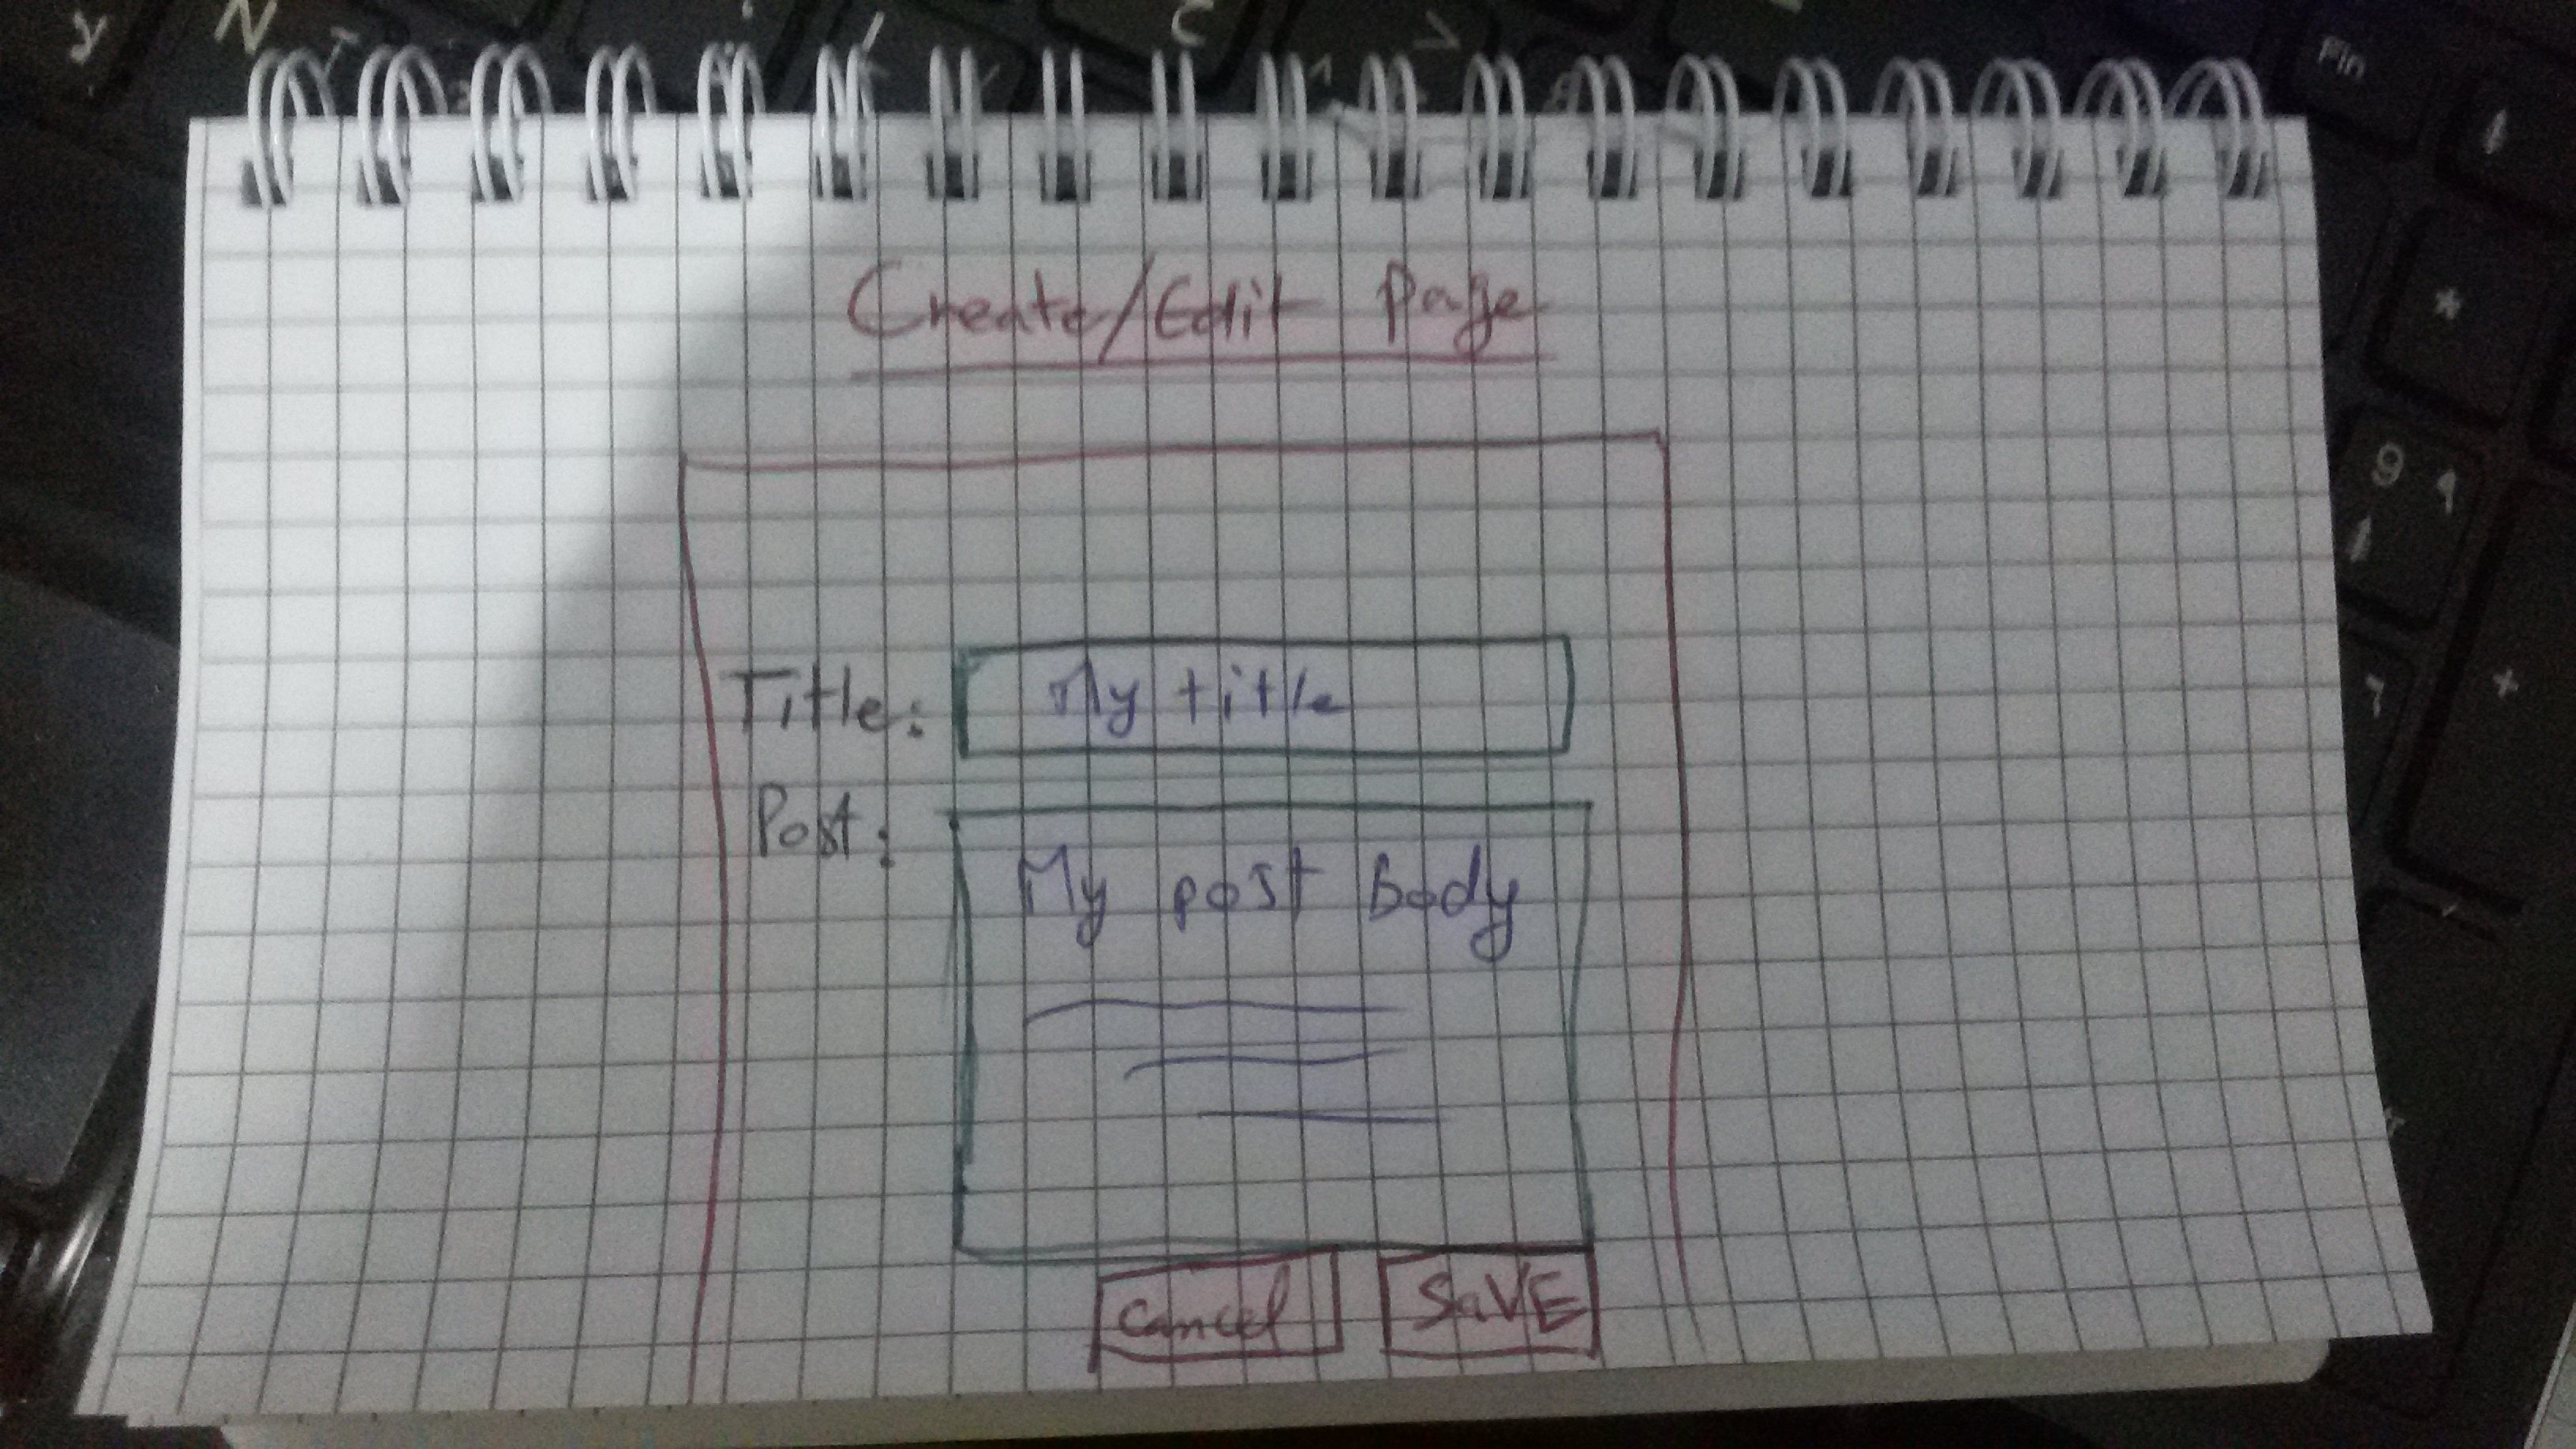 Create/Edit Page
Title: My title
Post: My post body
Cancel SaVE